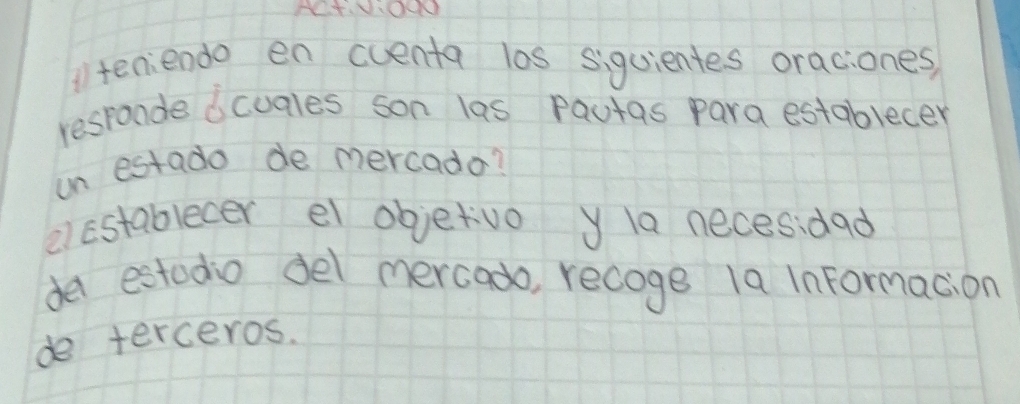 Actividad
1) teniendo en cuenta los siguientes oraciones,
responde ¿cuales son las pautas para establecer
un estado de mercado?
e) Establecer el objetivo y la necesidad
del estudio del mercado, recoge la informacion
de terceros.